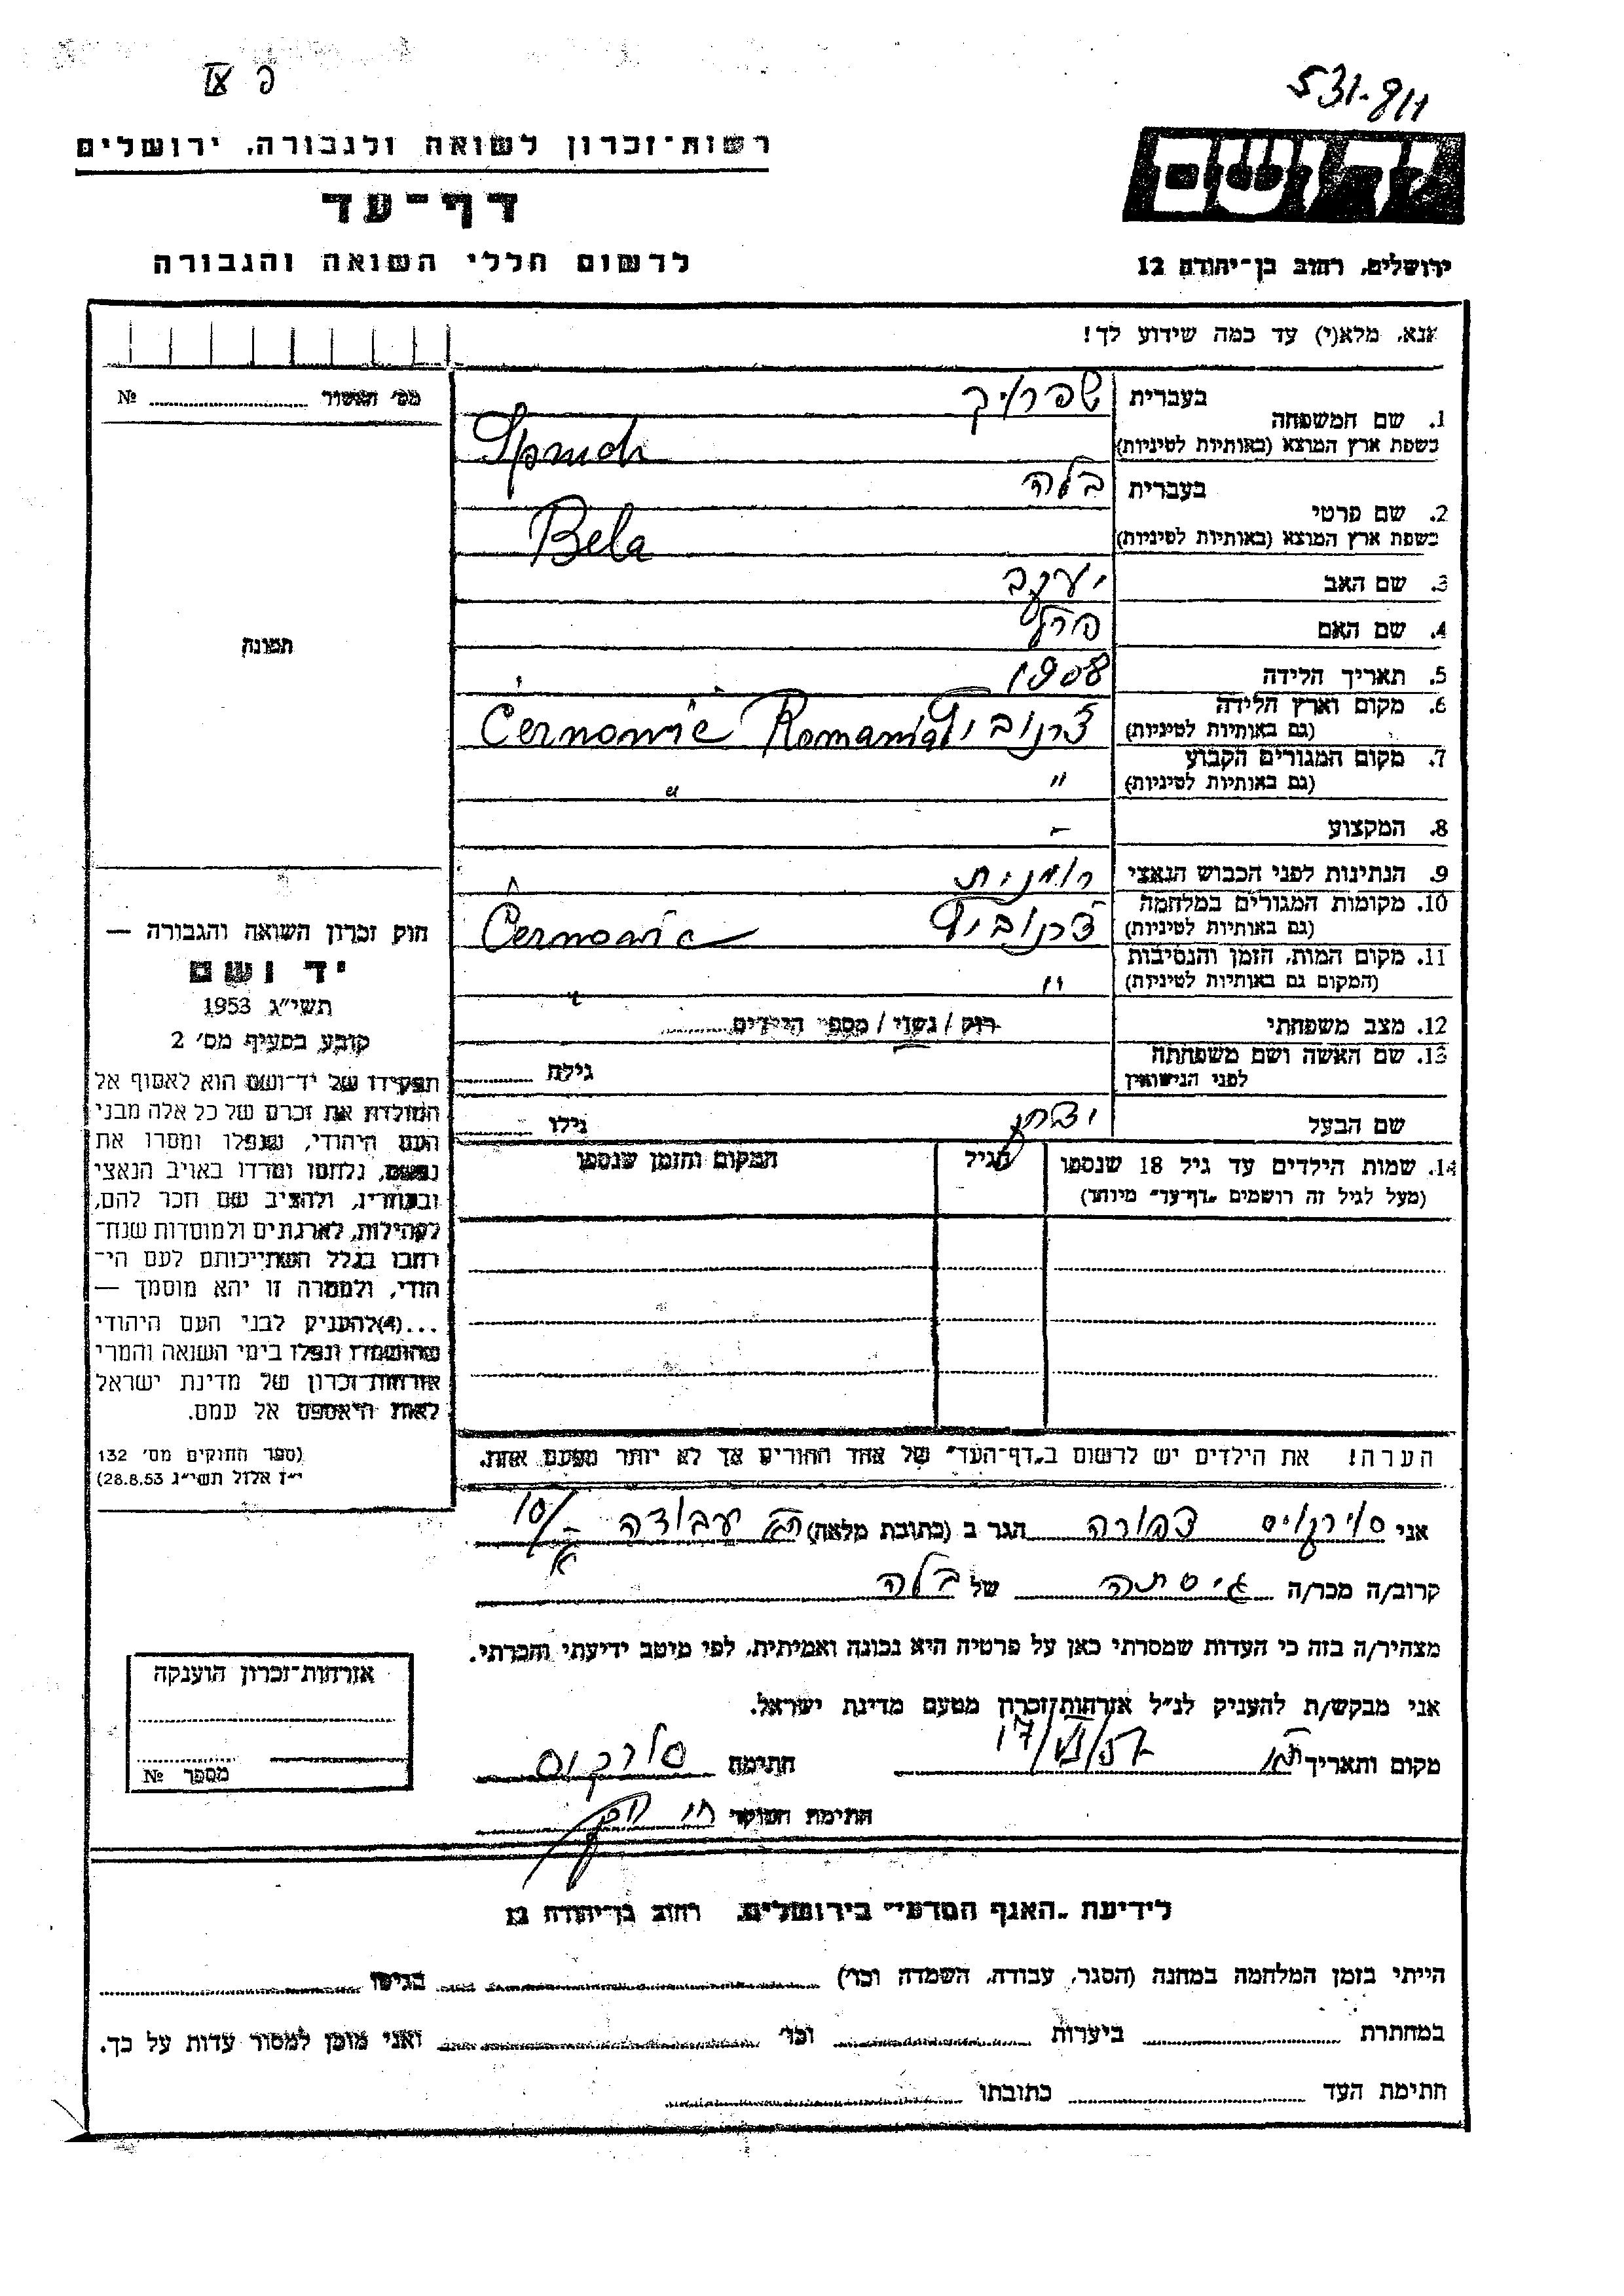 פ IX
531-811
רשות־זכרון לשואה ולגבורה, ירושלים
דף־עד
לרשום חללי השואה והגבורה
יד ושם
ירושלים, רחוב בן־יהודה 12
אנא, מלא(י) עד כמה שידוע לך!
מס' האשור № ........
1. שם המשפחה
בעברית
בשפת ארץ המוצא (באותיות לטיניות)
Spruch
2. שם פרטי
בעברית בלה
בשפת ארץ המוצא (באותיות לטיניות)
Bela
3. שם האב יעקב
4. שם האם פרל
5. תאריך הלידה 1908
6. מקום וארץ הלידה
(גם באותיות לטיניות)
צרנוביץ Romania Černowic
7. מקום המגורים הקבוע
(גם באותיות לטיניות)
" "
8. המקצוע -
9. הנתינות לפני הכבוש הנאצי רומנית
10. מקומות המגורים במלחמה
(גם באותיות לטיניות)
צרנוביץ Černowic
11. מקום המות, הזמן והנסיבות
(המקום גם באותיות לטיניות)
" "
12. מצב משפחתי רוק / נשוי / מספר הילדים ........
13. שם האשה ושם משפחתה
לפני הנישואין
גילה ........
שם הבעל יצחק גילו ........
14. שמות הילדים עד גיל 18 שנספו
(מעל לגיל זה רושמים „דף־עד” מיוחד)
הגיל
המקום והזמן שנספו
הערה! את הילדים יש לרשום ב„דף־העד” של אחד ההורים אך לא יותר מפעם אחת.
תמונה
חוק זכרון השואה והגבורה —
יד ושם
תשי״ג 1953
קובע בסעיף מס' 2
תפקידו של יד־ושם הוא לאסוף אל
המולדת את זכרם של כל אלה מבני
העם היהודי, שנפלו ומסרו את
נפשם, נלחמו ומרדו באויב הנאצי
ובעוזריו, ולהציב שם וזכר להם,
לקהילות, לארגונים ולמוסדות שנח־
רבו בגלל השתייכותם לעם הי־
הודי, ולמטרה זו יהא מוסמך —
...(4)להעניק לבני העם היהודי
שהושמדו ונפלו בימי השואה והמרי
אזרחות־זכרון של מדינת ישראל
לאות היאספם אל עמם.
(ספר החוקים מס' 132
י״ז אלול תשי״ג 28.8.53)
אני צפורה הגר ב (כתובת מלאה) ת"א עבודה 10/א
קרוב/ה מכר/ה גיסתה של בלה
מצהיר/ה בזה כי העדות שמסרתי כאן על פרטיה היא נכונה ואמיתית, לפי מיטב ידיעתי והכרתי.
אני מבקש/ת להעניק לנ״ל אזרחות־זכרון מטעם מדינת ישראל.
מקום ותאריך ת"א 17/VI/57 חתימה
חתימת הפוקד
אזרחות־זכרון הוענקה
מספר №
לידיעת „האגף המדעי” בירושלים, רחוב בן־יהודה 12
הייתי בזמן המלחמה במחנה (הסגר, עבודה, השמדה וכו') ........ בגיטו ........
במחתרת ........ ביערות ........ וכו' ........ ואני מוכן למסור עדות על כך.
חתימת העד ........ כתובתו ........